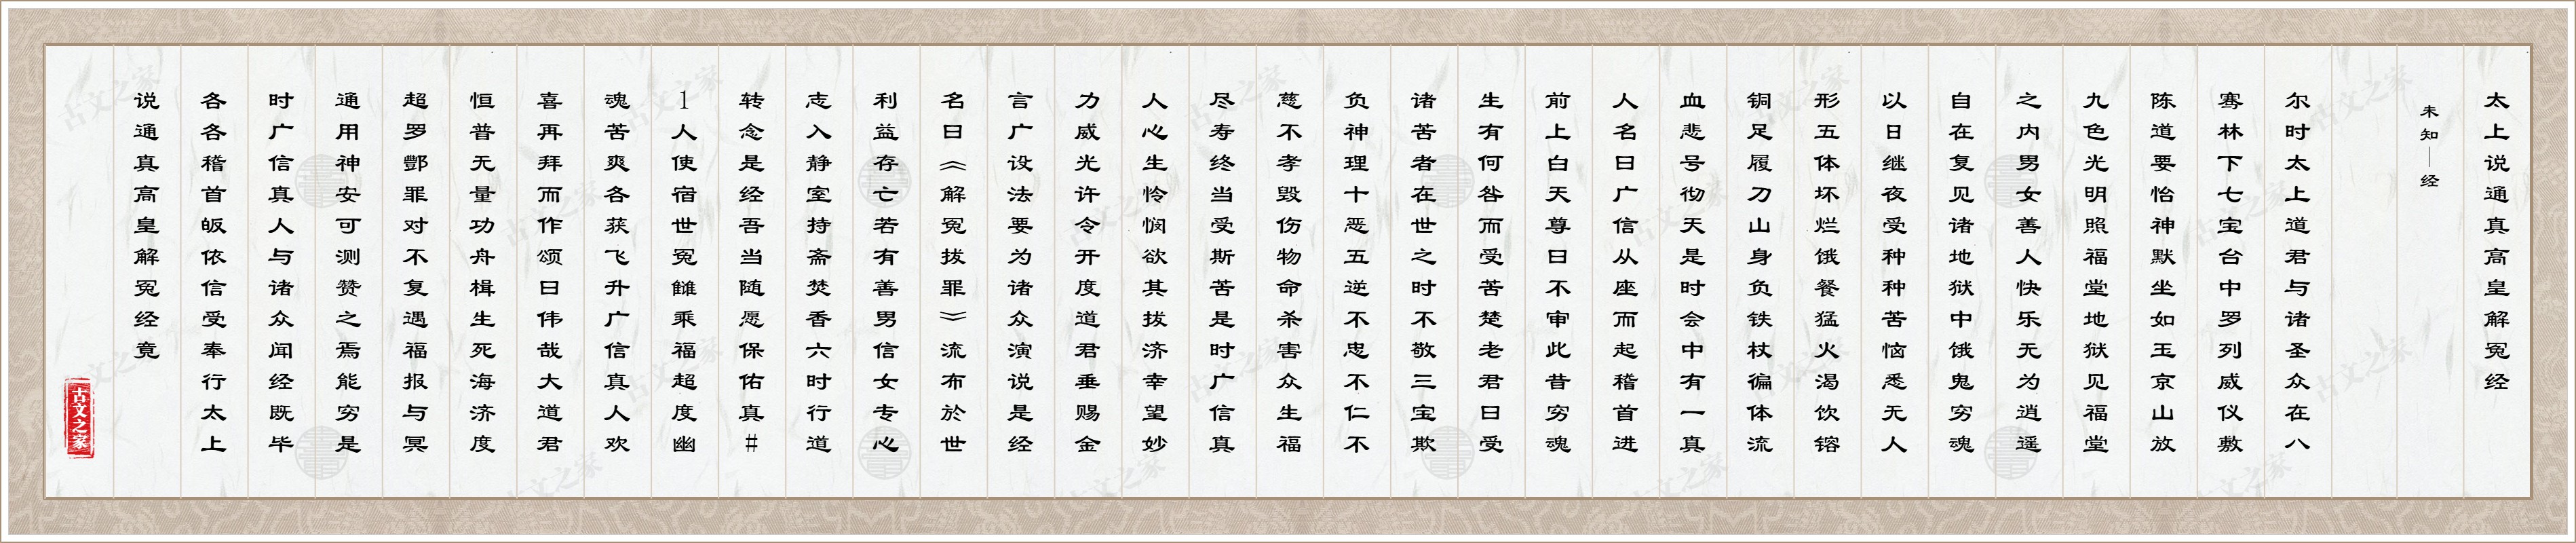 太上说通真高皇解冤经
未知｜经
尔时太上道君与诸圣众在八
骞林下七宝台中罗列威仪敷
陈道要怡神默坐如玉京山放
九色光明照福堂地狱见福堂
之内男女善人快乐无为逍遥
自在复见诸地狱中饿鬼穷魂
以日继夜受种种苦恼悉无人
形五体坏烂饿餐猛火渴饮镕
铜足履刀山身负铁杖徧体流
血悲号彻天是时会中有一真
人名曰广信从座而起稽首进
前上白天尊曰不审此昔穷魂
生有何咎而受苦楚老君曰受
诸苦者在世之时不敬三宝欺
负神理十恶五逆不忠不仁不
慈不孝毁伤物命杀害众生福
尽寿终当受斯苦是时广信真
人心生怜悯欲其拔济幸望妙
力威光许令开度道君垂赐金
言广设法要为诸众演说是经
名曰《解冤拔罪》流布於世
利益存亡若有善男信女专心
志入静室持斋焚香六时行道
转念是经吾当随愿保佑真#
1人使宿世冤雠乘福超度幽
魂苦爽各获飞升广信真人欢
喜再拜而作颂曰伟哉大道君
恒普无量功舟楫生死海济度
超罗酆罪对不复遇福报与冥
通用神安可测赞之焉能穷是
时广信真人与诸众闻经既毕
各各稽首皈依信受奉行太上
说通真高皇解冤经竟
古文之家